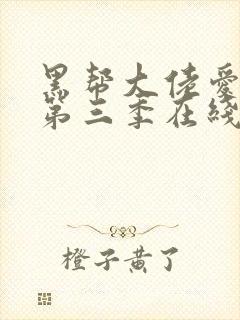 黑帮大佬爱
第三季在线
橙子黄了